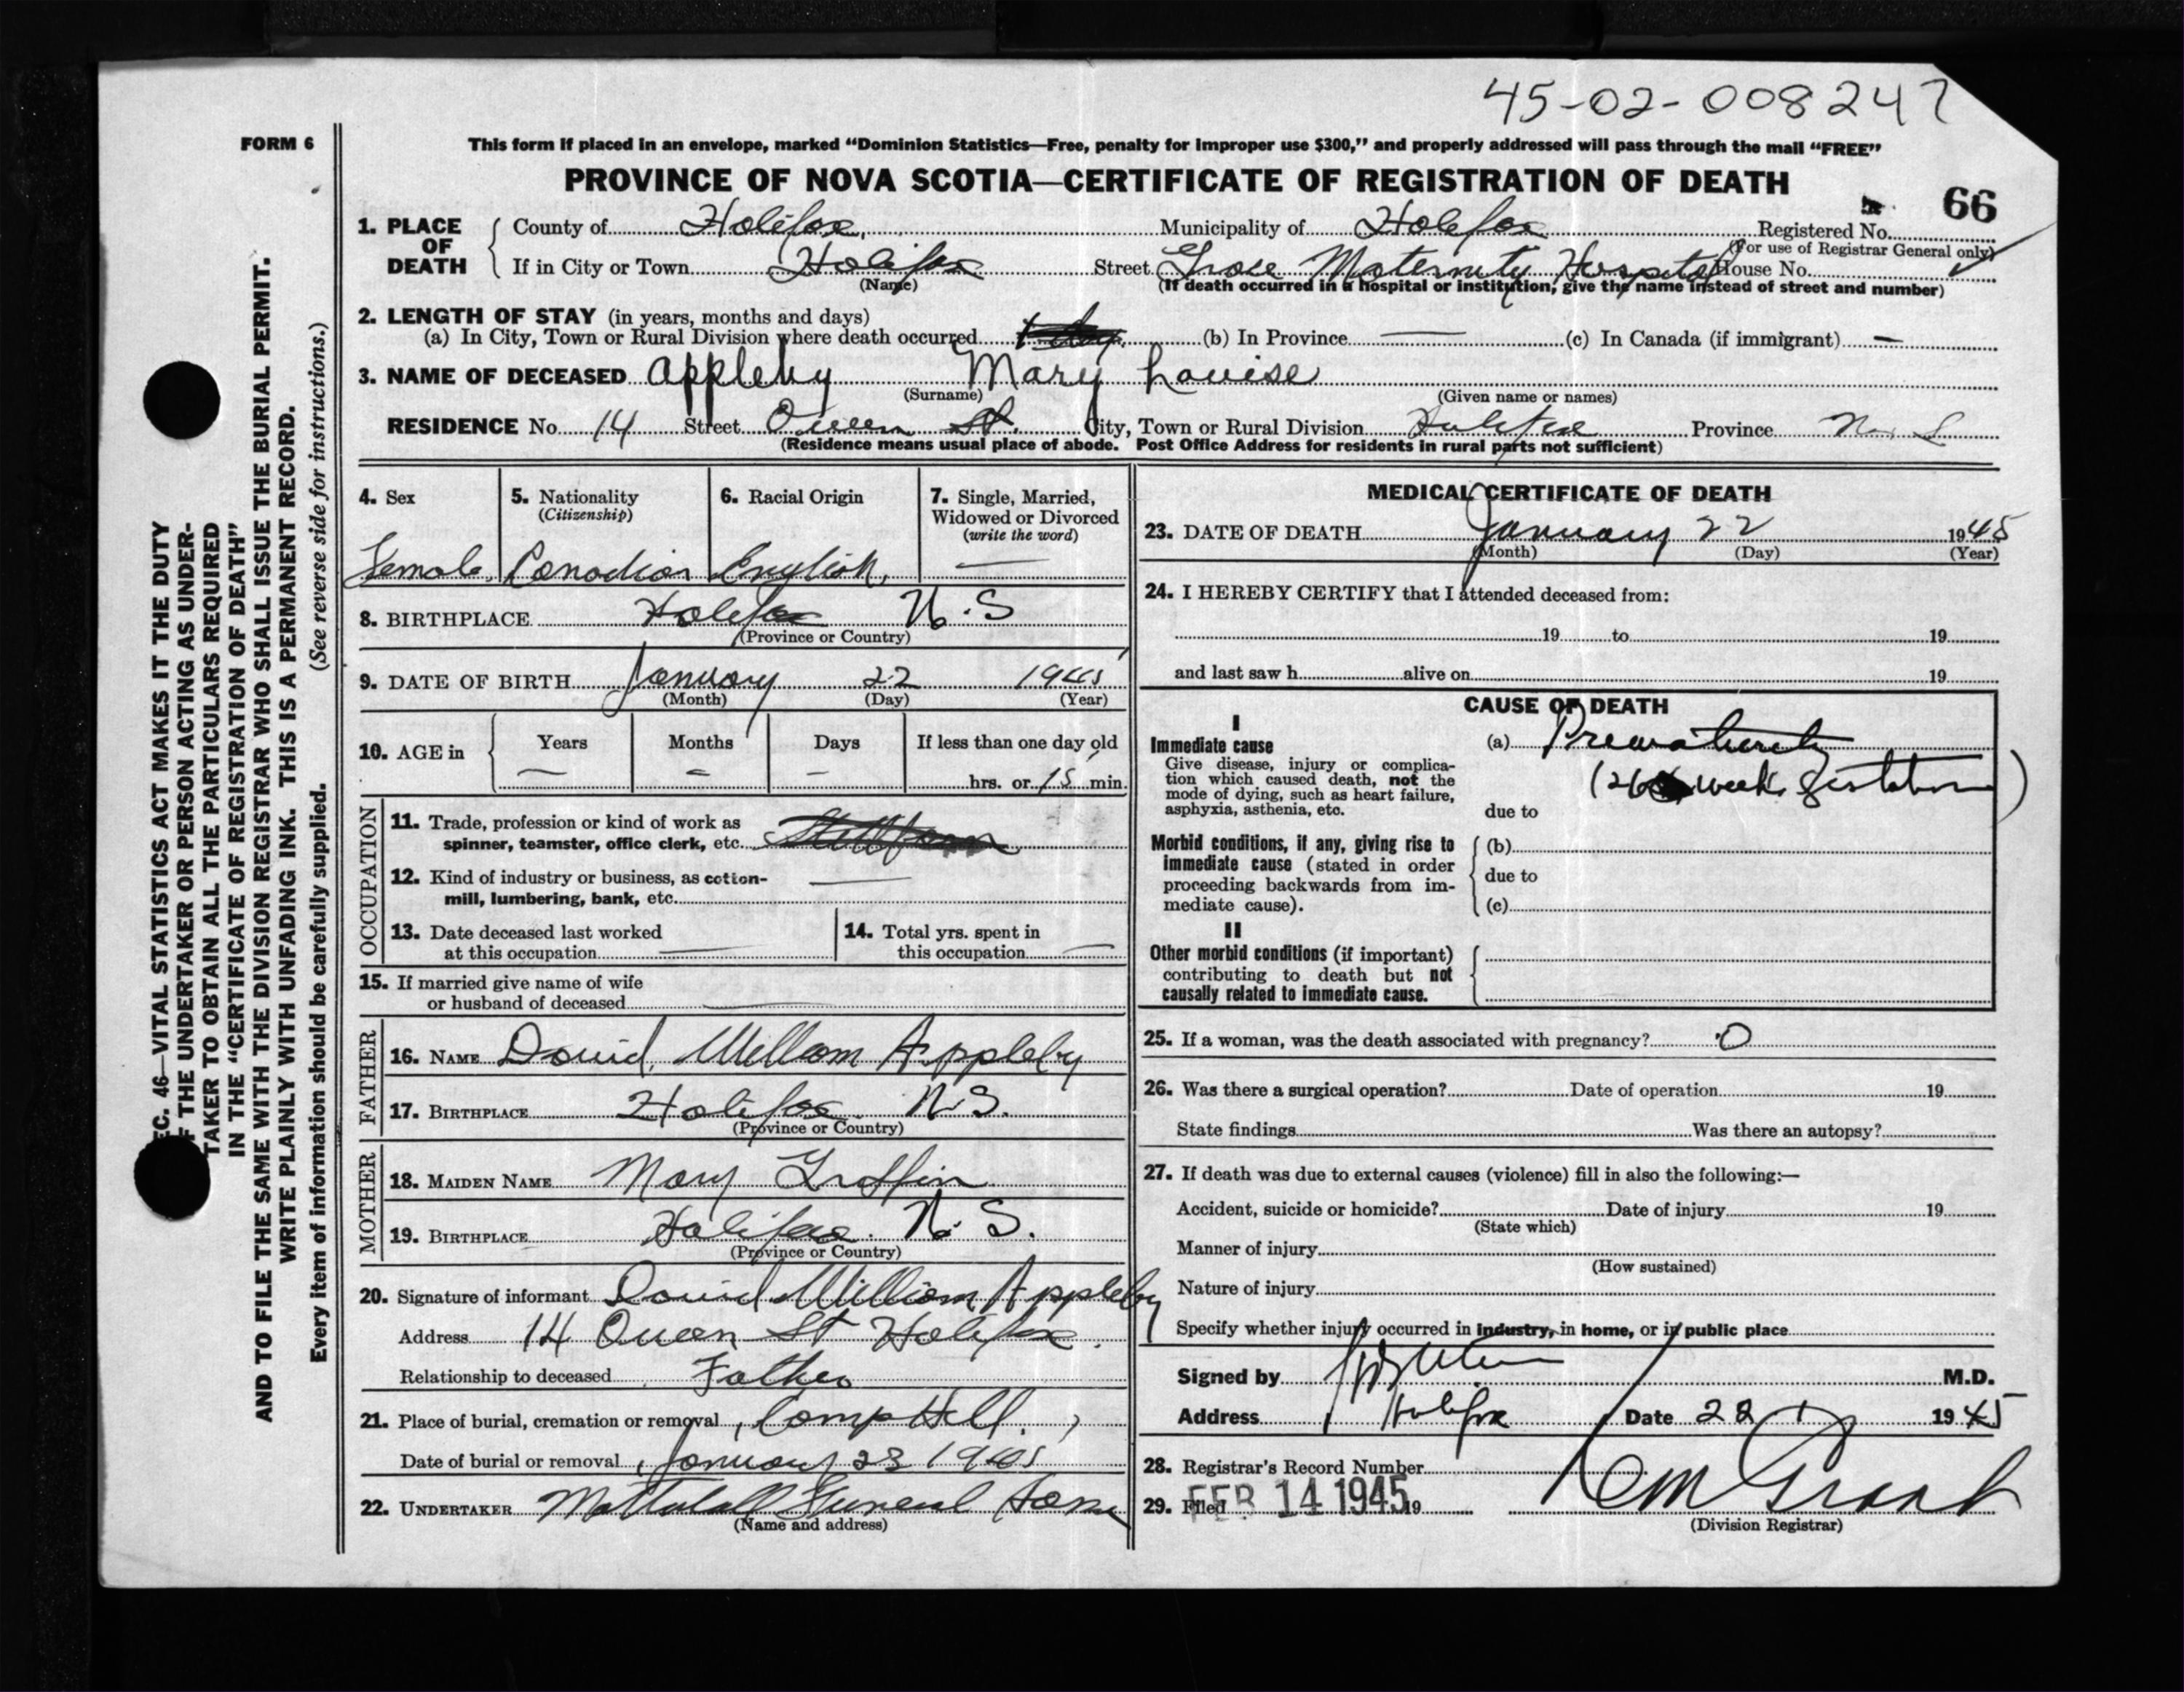 45-02-008247
FORM 6
This form if placed in an envelope, marked "Dominion Statistics—Free, penalty for improper use $300," and properly addressed will pass through the mail "FREE"
PROVINCE OF NOVA SCOTIA—CERTIFICATE OF REGISTRATION OF DEATH
66
1. PLACE OF DEATH County of Halifax Municipality of Halifax Registered No.
(For use of Registrar General only)
If in City or Town Halifax Street Grace Maternity Hospital House No.
(Name) (If death occurred in a hospital or institution, give the name instead of street and number)
2. LENGTH OF STAY (in years, months and days)
(a) In City, Town or Rural Division where death occurred (b) In Province — (c) In Canada (if immigrant) —
3. NAME OF DECEASED Appleby Mary Louise
(Surname) (Given name or names)
RESIDENCE No. 14 Street Queen St. City, Town or Rural Division Halifax Province N. S
(Residence means usual place of abode. Post Office Address for residents in rural parts not sufficient)
4. Sex
Female
5. Nationality
(Citizenship)
Canadian
6. Racial Origin
English
7. Single, Married,
Widowed or Divorced
(write the word)
—
8. BIRTHPLACE Halifax N.S
(Province or Country)
9. DATE OF BIRTH January 22 1945
(Month) (Day) (Year)
10. AGE in Years Months Days If less than one day old
— — — hrs. or 15 min.
OCCUPATION
11. Trade, profession or kind of work as
spinner, teamster, office clerk, etc. Stillborn
12. Kind of industry or business, as cotton-
mill, lumbering, bank, etc. —
13. Date deceased last worked
at this occupation —
14. Total yrs. spent in
this occupation —
15. If married give name of wife
or husband of deceased —
FATHER
16. NAME David William Appleby
17. BIRTHPLACE Halifax N.S.
(Province or Country)
MOTHER
18. MAIDEN NAME Mary Griffin
19. BIRTHPLACE Halifax. N. S.
(Province or Country)
20. Signature of informant David William Appleby
Address 14 Queen St Halifax.
Relationship to deceased Father
21. Place of burial, cremation or removal Camp Hill
Date of burial or removal January 23 1945
22. UNDERTAKER Mattatall Funeral Home
(Name and address)
MEDICAL CERTIFICATE OF DEATH
23. DATE OF DEATH January 22 1945
(Month) (Day) (Year)
24. I HEREBY CERTIFY that I attended deceased from:
19 to 19
and last saw h alive on 19
CAUSE OF DEATH
I
Immediate cause
Give disease, injury or complica-
tion which caused death, not the
mode of dying, such as heart failure,
asphyxia, asthenia, etc.
(a) Prematurity
(26 weeks gestation)
due to
Morbid conditions, if any, giving rise to
immediate cause (stated in order
proceeding backwards from im-
mediate cause).
(b)
due to
(c)
II
Other morbid conditions (if important)
contributing to death but not
causally related to immediate cause.
25. If a woman, was the death associated with pregnancy? O
26. Was there a surgical operation? Date of operation 19
State findings Was there an autopsy?
27. If death was due to external causes (violence) fill in also the following:—
Accident, suicide or homicide? Date of injury 19
(State which)
Manner of injury
(How sustained)
Nature of injury
Specify whether injury occurred in industry, in home, or in public place
Signed by M.D.
Address Halifax Date 22 1 1945
28. Registrar's Record Number
29. Filed FEB 14 1945 19
Grant
(Division Registrar)
EC. 46—VITAL STATISTICS ACT MAKES IT THE DUTY
F THE UNDERTAKER OR PERSON ACTING AS UNDER-
TAKER TO OBTAIN ALL THE PARTICULARS REQUIRED
IN THE "CERTIFICATE OF REGISTRATION OF DEATH"
AND TO FILE THE SAME WITH THE DIVISION REGISTRAR WHO SHALL ISSUE THE BURIAL PERMIT.
WRITE PLAINLY WITH UNFADING INK. THIS IS A PERMANENT RECORD.
Every item of information should be carefully supplied. (See reverse side for instructions.)